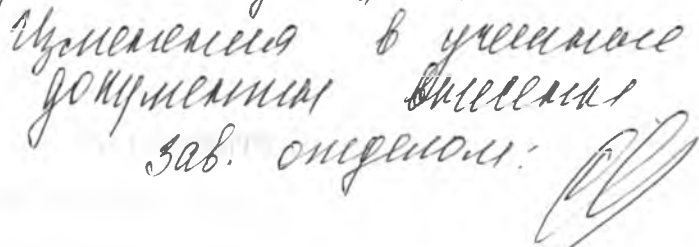 Изменения в учетные
документы внесены
Зав. отделом: